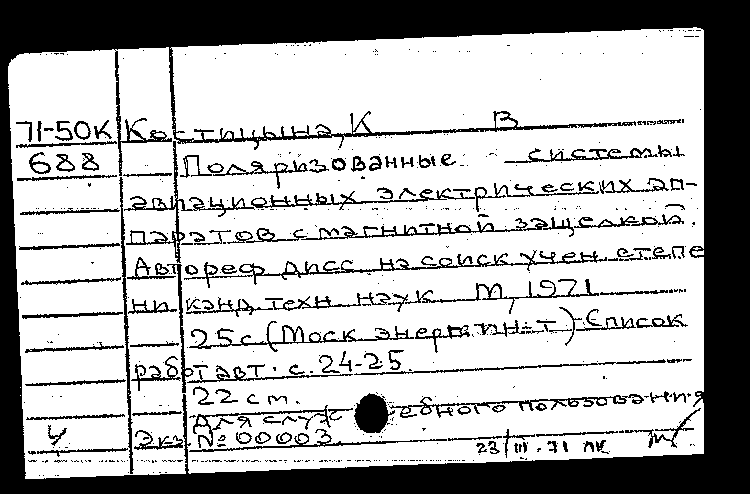 71-50к Костицына, К В
688 Поляризованные системы
авиационных электрических ап-
паратов с магнитной защелкой.
Автореф дисс. на соиск учен. степе
ни канд. техн. наук. М, 1971
25 с. (Моск энерг ин-т) Список
работ авт. с. 24-25.
22 см.
Для служебного пользования
Экз. № 00003.
23/III-71 ЛК